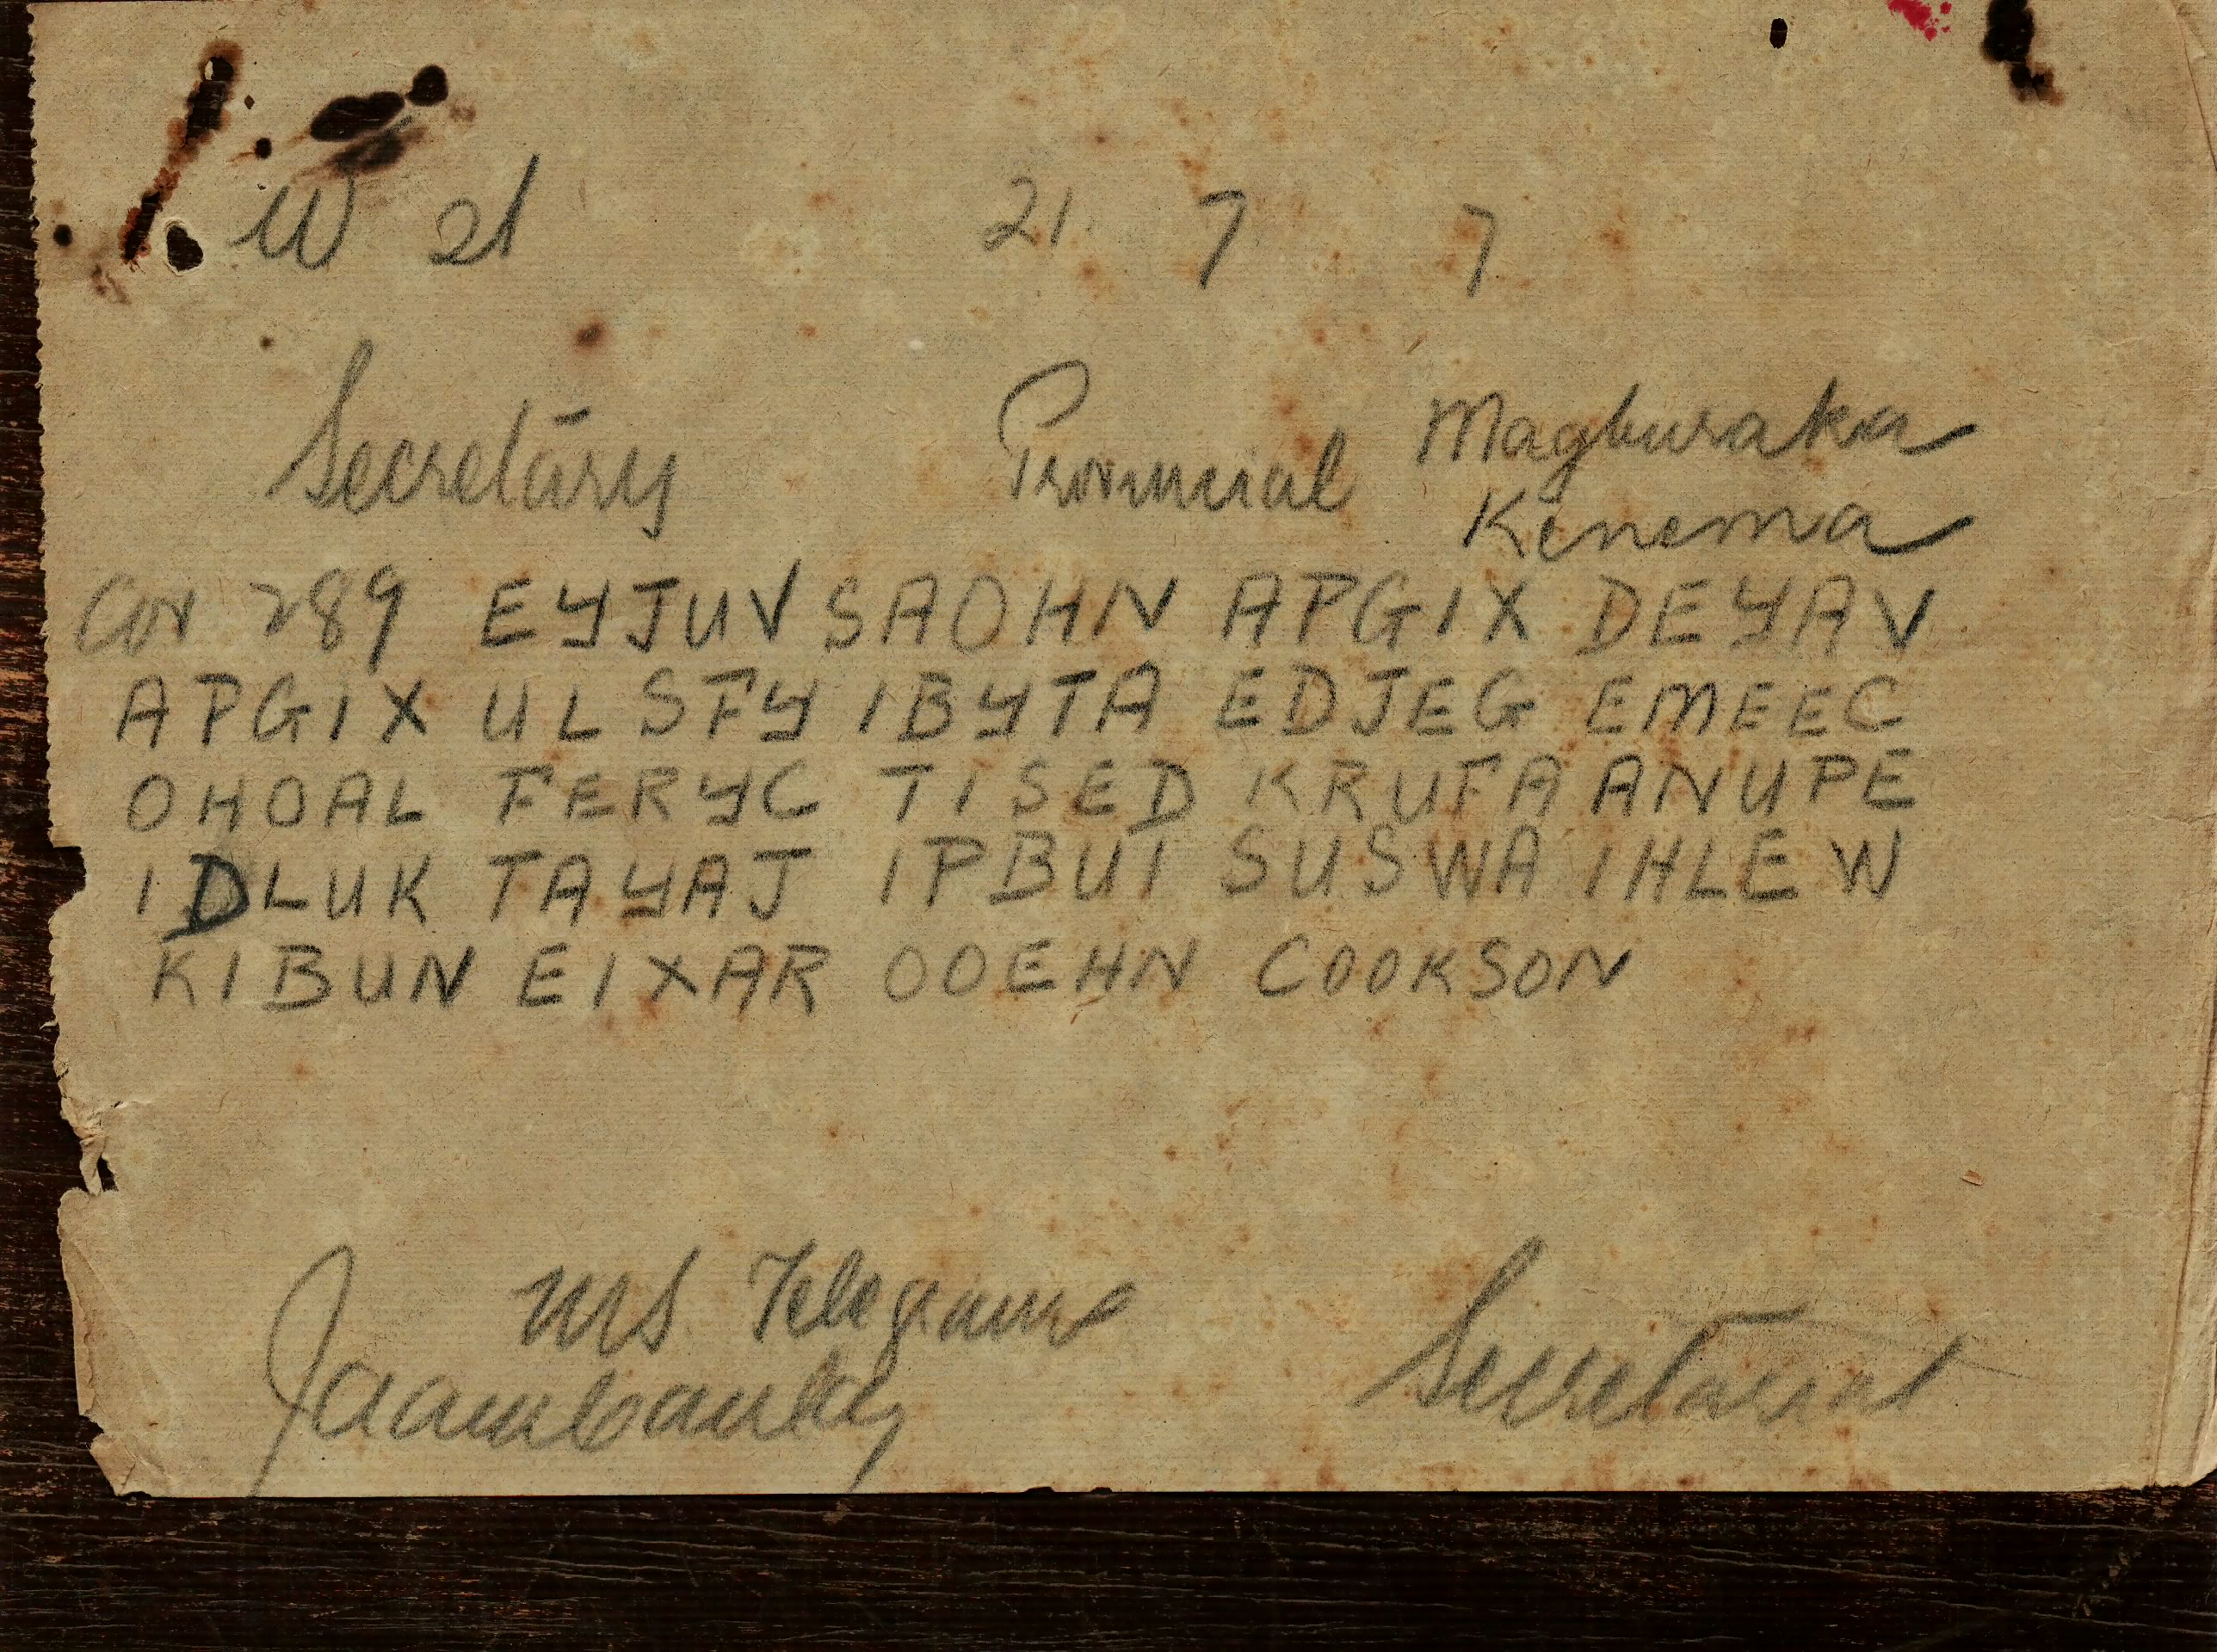 W 21 21. 7 7
Secretary Provincial Magburaka
Kenema
Con 289 EYJUV SAOHN APGIX DEYAV
APGIX ULSFY IBYTA EDJEG EMEEC
OHOAL FERYC TISED KRUFA ANUPE
IDLUK TAYAJ IPBUI SUSWA IHLEW
KIBUN EIXAR OOEHN COOKSON
Secretariat